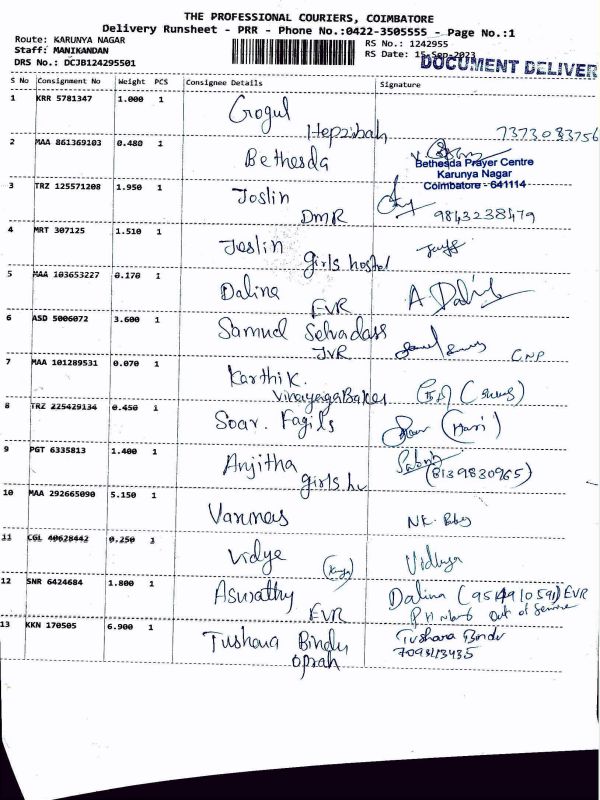 THE PROFESSIONAL COURIERS, COIMBATORE
Delivery Runsheet - PRR - Phone No.:0422-3505555 - Page No.:1
Route: KARUNYA NAGAR
Staff: MANIKANDAN
DRS No.: DCJB124295501
RS No.: 1242955
RS Date: 15-Sep-2023
DOCUMENT DELIVER
S No Consignment No Weight PCS Consignee Details Signature
1 KRR 5781347 1.000 1 Gogul
Hepzibah 7373083756
2 MAA 861369103 0.480 1 Bethesda
Bethesda Prayer Centre
Karunya Nagar
Coimbatore - 641114
3 TRZ 125571208 1.950 1 Joslin
DMR 9843238479
4 MRT 307125 1.510 1 Joslin
girls hostel
5 MAA 103653227 0.170 1 Dalina A Dalina
EVR
6 ASD 5006072 3.600 1 Samuel Selvadass
JVR
7 MAA 101289531 0.070 1 Karthik.
Vinayaga Baker
8 TRZ 225429134 0.450 1 Soar. (Hari)
9 PGT 6335813 1.400 1 Anjitha (8139830965)
girls
10 MAA 292665090 5.150 1
11 CGL 40628442 0.250 1 Vidya Vidhya
12 SNR 6424684 1.800 1 Dalina EVR
EVR Out of Service
13 KKN 170505 6.900 1 Tushara Bindu Tushara Bindu
oprah